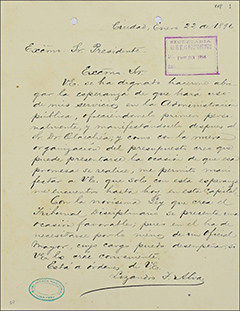 Ciudad, Enero 22 de 1896
Excmo. Sr. Presidente.
Excmo. Sr.
V.E. se ha dignado hacerme abri-
gar la esperanza de que hará uso
de mis servicios en la Administración
pública, ofreciéndomelo primero perso-
nalmente, y manifestándolo después al
Sr. Dr. y como con la nueva
organización del presupuesto creo que
puede presentarse la ocasión de que esa
promesa se realice, me permito mani-
festar a V.E. que solo con esta esperan-
za me encuentro hasta hoy en esta Capital.
Con la novísima Ley que crea el
Tribunal Disciplinario se presenta una
ocasión favorable; pues en él ha de
necesitarse por lo menos de un Oficial
Mayor, cuyo cargo puedo desempeñar, si
V.E. lo cree conveniente.
Está a órdenes de V.E.
Lizandro